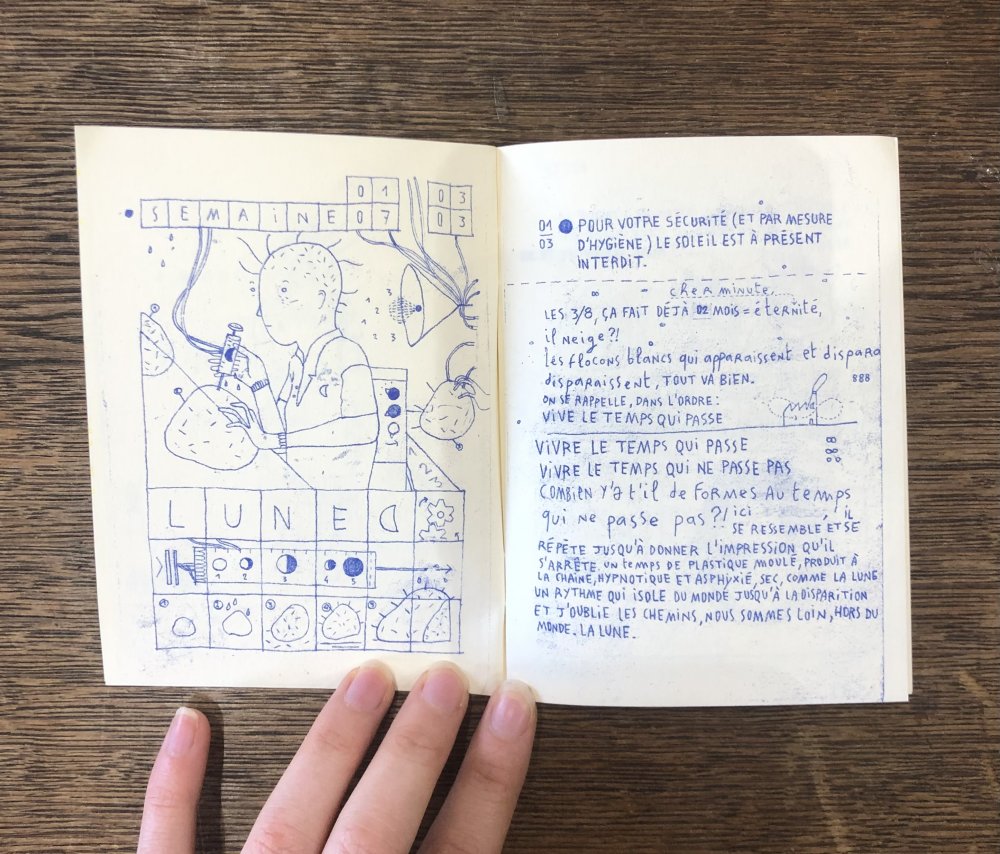 01 03
SEMAINE 07 03
1 2 3
1 2 3
1 2 3
LUNE
1 2 3 4 5
1 2 3 4 5
01 POUR VOTRE SÉCURITÉ (ET PAR MESURE
03 D'HYGIÈNE) LE SOLEIL EST À PRÉSENT
INTERDIT.
cher minute,
LES 3/8, ÇA FAIT DÉJÀ 02 MOIS = éterñité,
il neige?!
les flocons blancs qui apparaissent et dispara
disparaissent, TOUT VA BIEN.
888
ON SE RAPPELLE, DANS L'ORDRE:
VIVE LE TEMPS QUI PASSE
VIVRE LE TEMPS QUI PASSE
VIVRE LE TEMPS QUI NE PASSE PAS
COMBIEN Y'a t'il de FORMES AU temps
qui ne passe pas?! ici, IL
SE RESSEMBLE ET SE
RÉPÈTE JUSQU'À DONNER L'IMPRESSION QU'IL
S'ARRÊTE. UN TEMPS DE PLASTIQUE MOULÉ, PRODUIT À
LA CHAÎNE, HYPNOTIQUE ET ASPHYXIÉ, SEC, COMME LA LUNE
UN RYTHME QUI ISOLE DU MONDE JUSQU'À LA DISPARITION
ET J'OUBLIE LES CHEMINS, NOUS SOMMES LOIN, HORS DU
MONDE. LA LUNE.